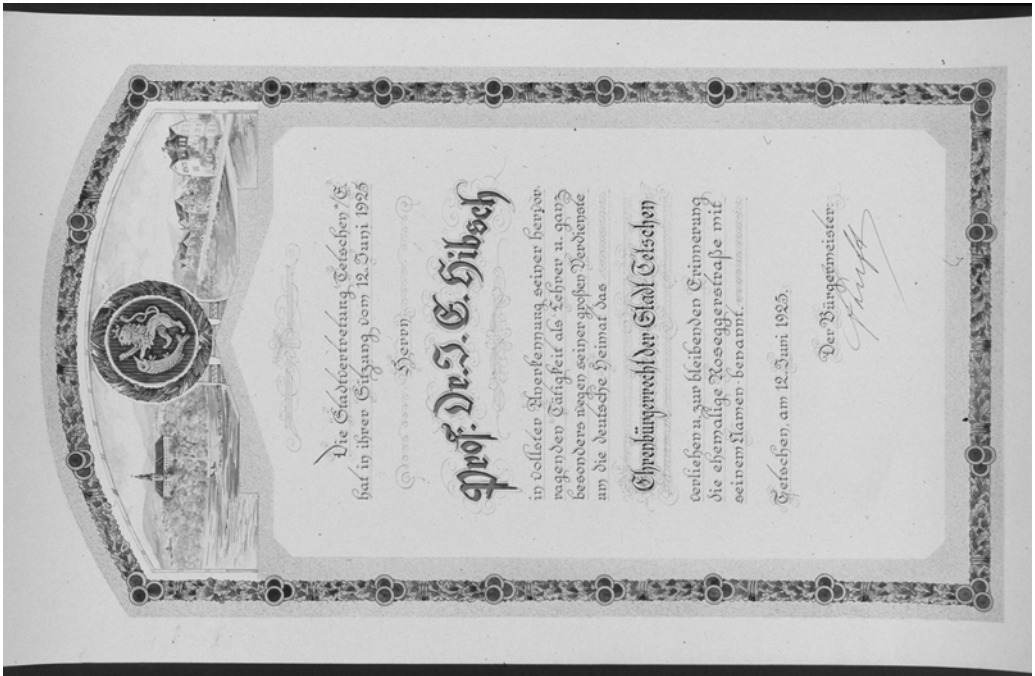 Die Stadtvertretung Tetschen a/E.
hat in ihrer Sitzung vom 12. Juni 1925
Herrn
Prof. Dr. J. E. Hibsch
in vollster Anerkennung seiner hervor-
ragenden Tätigkeit als Lehrer u. ganz
besonders wegen seiner großen Verdienste
um die deutsche Heimat das
Ehrenbürgerrecht der Stadt Tetschen
verliehen u. zur bleibenden Erinnerung
die ehemalige Roseggerstraße mit
seinem Namen benannt.
Tetschen, am 12. Juni 1925.
Der Bürgermeister: